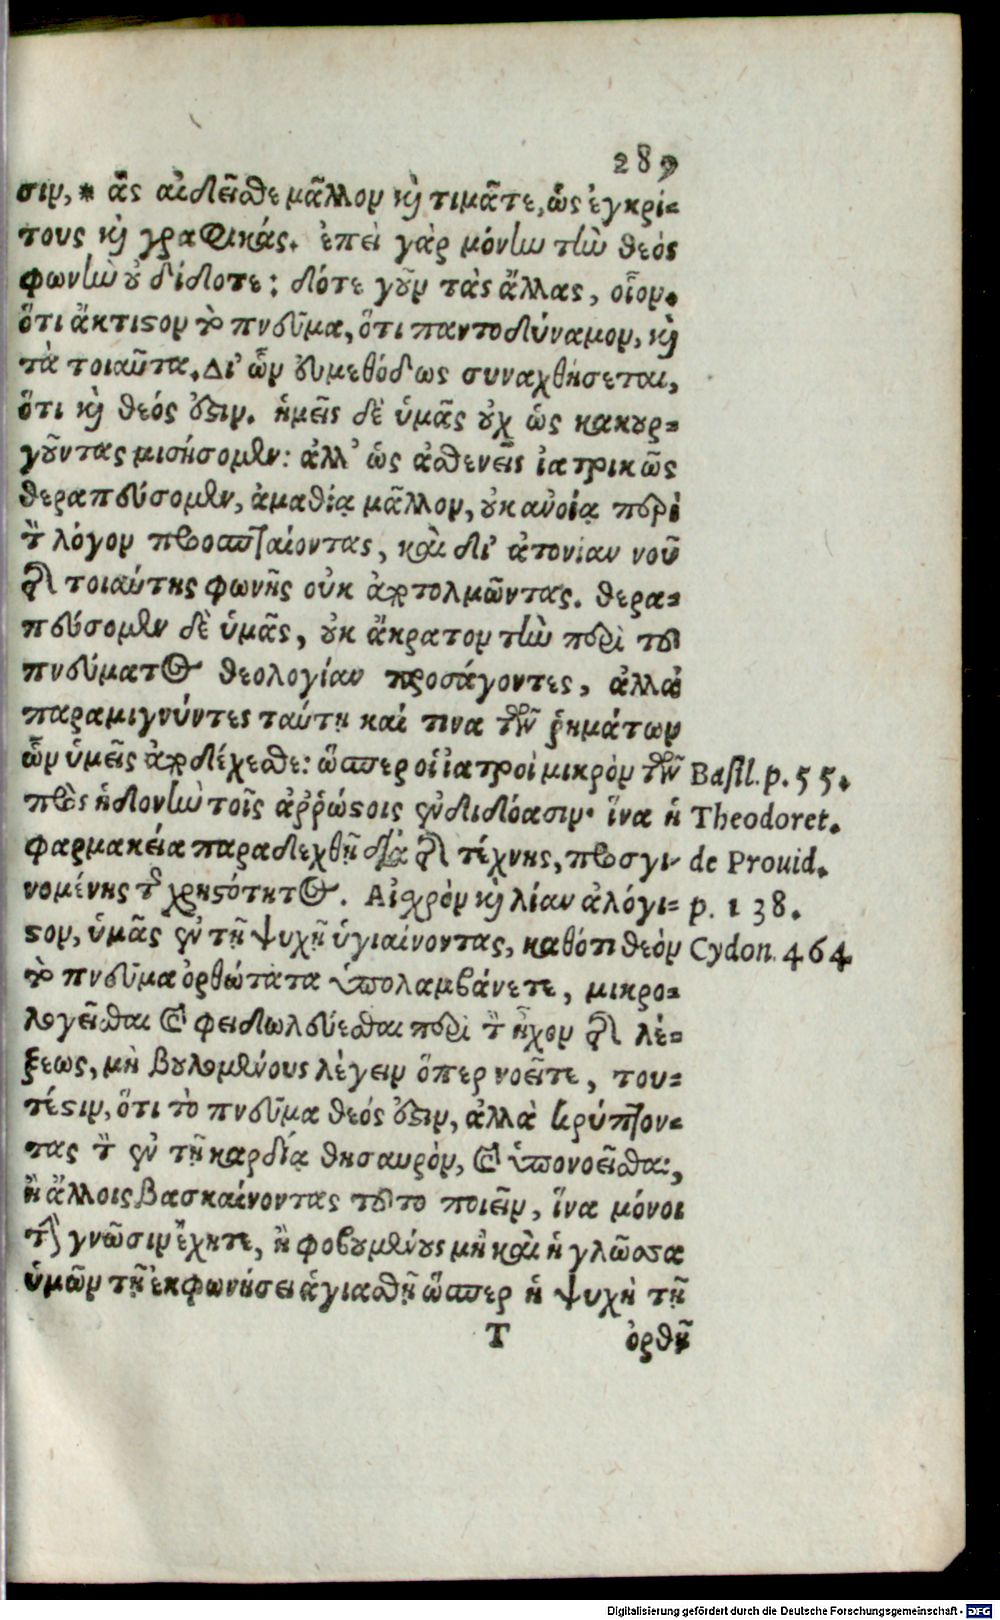 289
σιν, * ἃς αἰδεῖσθε μᾶλλον καὶ τιμᾶτε, ὡς ἐγκρί-
τους καὶ γραφικάς. ἐπεὶ γὰρ μόνην τὴν θεός
φωνὴν οὐ δίδοτε; δότε γοῦν τὰς ἄλλας, οἷον.
ὅτι ἄκτιστον τὸ πνεῦμα, ὅτι παντοδύναμον, καὶ
τὰ τοιαῦτα. Δι' ὧν εὐμεθόδως συναχθήσεται,
ὅτι καὶ θεός ἐστιν. ἡμεῖς δὲ ὑμᾶς οὐχ ὡς κακουρ-
γοῦντας μισήσομεν: ἀλλ' ὡς ἀσθενεῖς ἰατρικῶς
θεραπεύσομεν, ἀμαθίᾳ μᾶλλον, οὐκ ἀνοίᾳ περὶ
τὸν λόγον προσπταίοντας, καὶ δι' ἀτονίαν νοῦ
τῆς τοιαύτης φωνῆς οὐκ ἀντολμῶντας. θερα-
πεύσομεν δὲ ὑμᾶς, οὐκ ἄκρατον τὴν περὶ τοῦ
πνεύματος θεολογίαν προσάγοντες, ἀλλὰ
παραμιγνύντες ταύτῃ καί τινα τῶν ῥημάτων
ὧν ὑμεῖς παραδέχεσθε: ὥσπερ οἱ ἰατροὶ μικρὸν τῶν
πρὸς ἡδονὴν τοῖς ἀῤῥώστοις ἐνδιδόασιν· ἵνα ἡ
φαρμακεία παραδεχθῇ διὰ τῆς τέχνης, προσγι-
νομένης τῆς χρηστότητος. Αἰσχρὸν καὶ λίαν ἀλόγι-
στον, ὑμᾶς ἐν τῇ ψυχῇ ὑγιαίνοντας, καθότι θεὸν
τὸ πνεῦμα ὀρθώτατα ὑπολαμβάνετε, μικρο-
λογεῖσθαι καὶ φειδωλεύεσθαι περὶ τὸν ἦχον τῆς λέ-
ξεως, μὴ βουλομένους λέγειν ὅπερ νοεῖτε, του-
τέστιν, ὅτι τὸ πνεῦμα θεός ἐστιν, ἀλλὰ κρύπτον-
τας τὸν ἐν τῇ καρδίᾳ θησαυρὸν, καὶ ὑπονοεῖσθαι,
ἢ ἄλλοις βασκαίνοντας τοῦτο ποιεῖν, ἵνα μόνοι
τὴν γνῶσιν ἔχητε, ἢ φοβουμένους μὴ καὶ ἡ γλῶσσα
ὑμῶν τῇ ἐκφωνήσει ἁγιασθῇ ὥσπερ ἡ ψυχὴ τῇ
T ὀρθῇ
Basil. p. 55.
Theodoret.
de Prouid.
p. 138.
Cydon. 464.
Digitalisierung gefördert durch die Deutsche Forschungsgemeinschaft - DFG